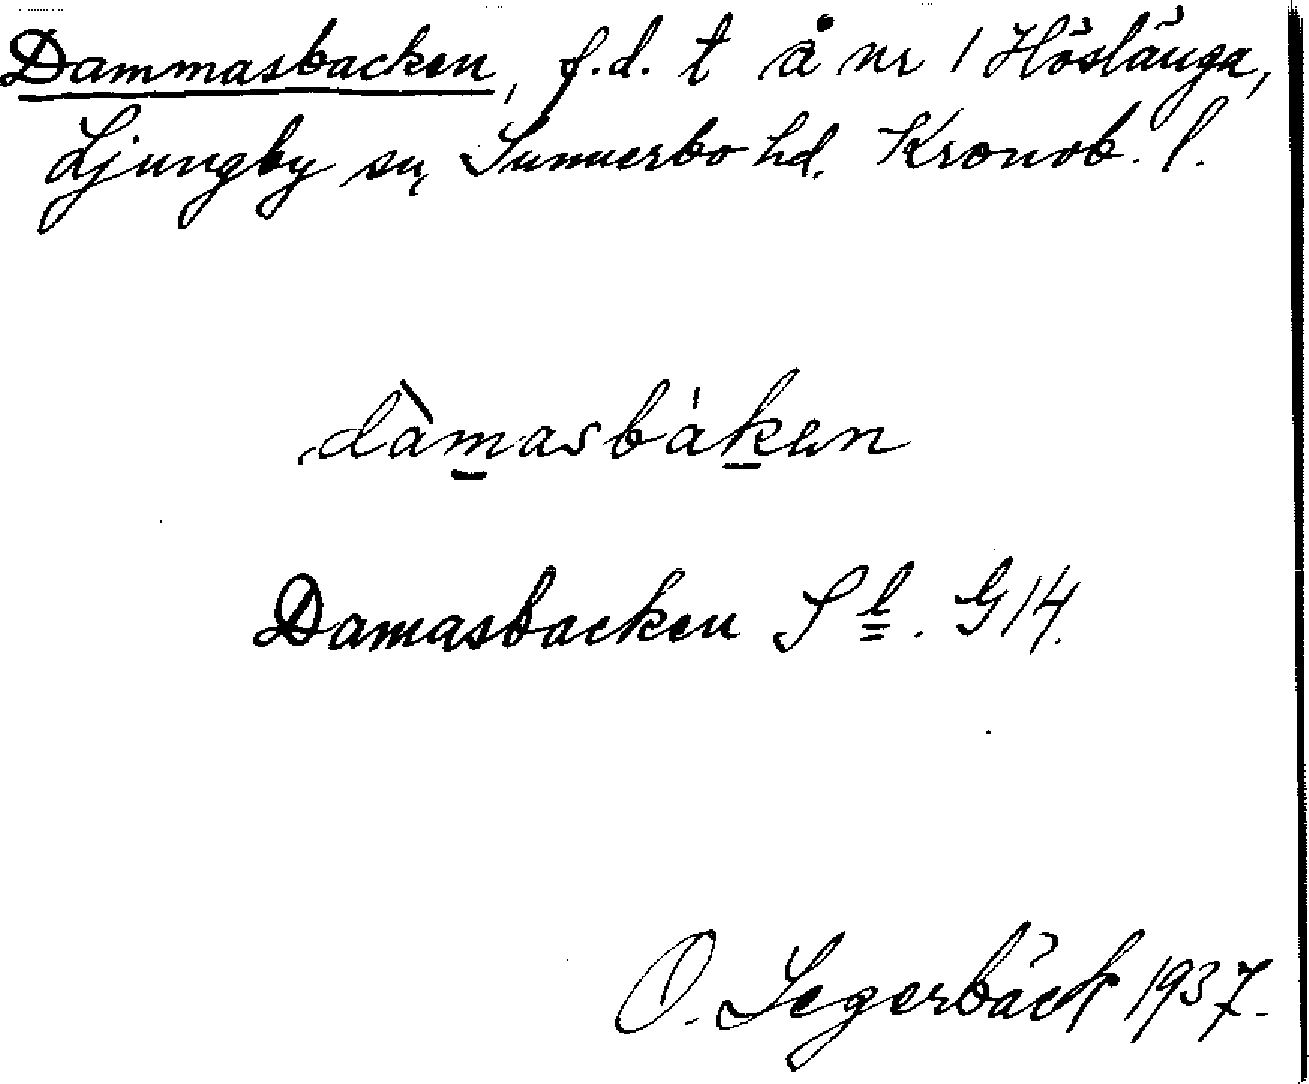 Dammasbacken, f.d. t å nr 1 Höslänga,
Ljungby sn, Sunnerbo hd. Kronob. l.
dàmasbáken
Damasbacken Sl. G14.
O. Segerbäck 1937.